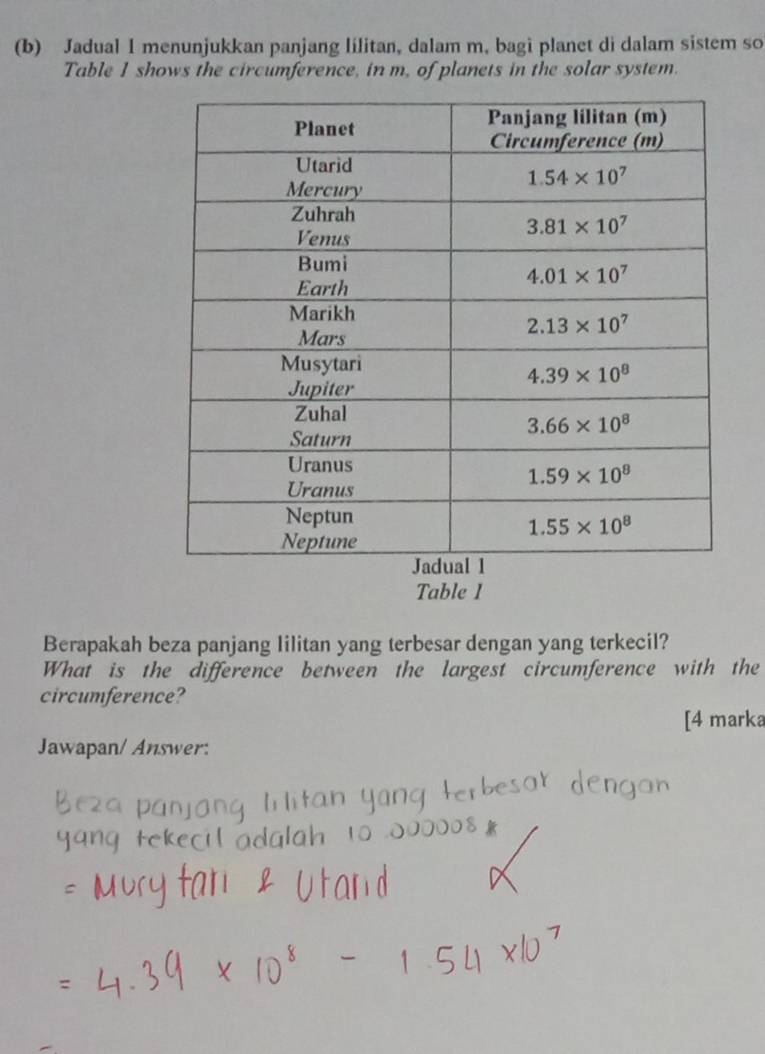 (b) Jadual 1 menunjukkan panjang lilitan, dalam m, bagi planet di dalam sistem so
Table 1 shows the circumference, in m, of planets in the solar system.
Planet Panjang lilitan (m)
Circumference (m)
Utarid
Mercury 1.54 × 10⁷
Zuhrah
Venus 3.81 × 10⁷
Bumi
Earth 4.01 × 10⁷
Marikh
Mars 2.13 × 10⁷
Musytari
Jupiter 4.39 × 10⁸
Zuhal
Saturn 3.66 × 10⁸
Uranus
Uranus 1.59 × 10⁸
Neptun
Neptune 1.55 × 10⁸
Jadual 1
Table 1
Berapakah beza panjang lilitan yang terbesar dengan yang terkecil?
What is the difference between the largest circumference with the
circumference?
[4 marka
Jawapan/ Answer:
Beza panjang lilitan yang terbesar dengan
yang tekecil adalah 10.000008
= Musytari & Utarid
= 4.39 × 10⁸ - 1.54 × 10⁷